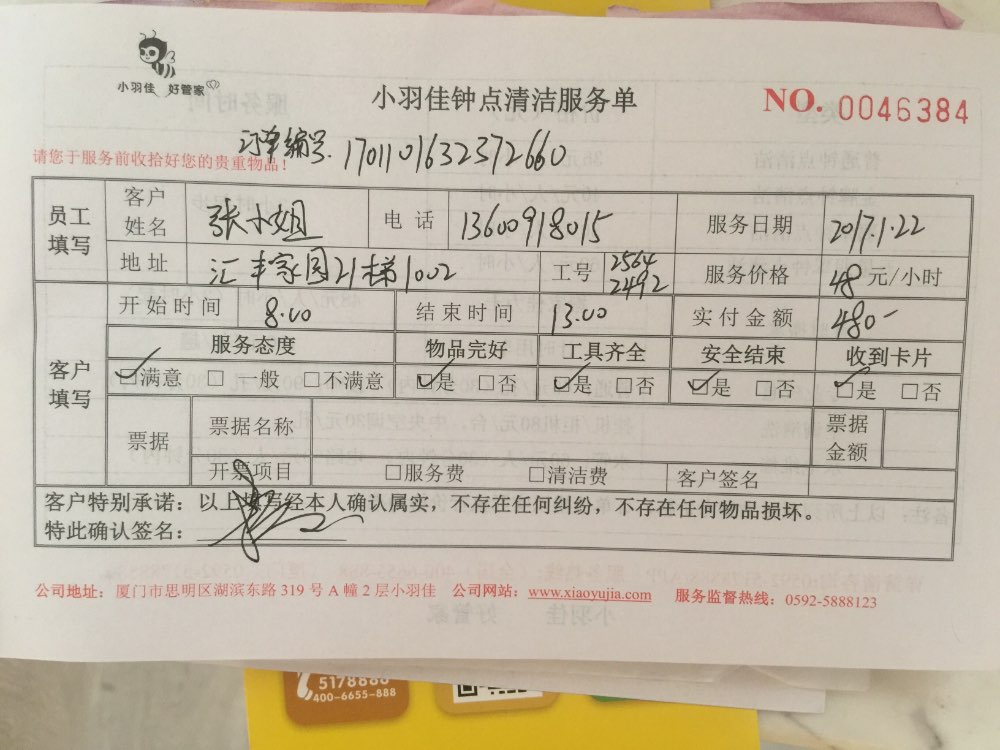 小羽佳 好管家
小羽佳钟点清洁服务单
NO. 0046384
订单编号. 1701101632372660
请您于服务前收拾好您的贵重物品!
员工填写 客户姓名 张小姐 电话 13600918015 服务日期 2017.1.22
地址 汇丰家园21梯1002 工号 2564 2492 服务价格 48元/小时
客户填写 开始时间 8.00 结束时间 13.00 实付金额 480-
服务态度 物品完好 工具齐全 安全结束 收到卡片
☑满意 □一般 □不满意 ☑是 □否 ☑是 □否 ☑是 □否 ☑是 □否
票据 票据名称 票据金额
开票项目 □服务费 □清洁费 客户签名
客户特别承诺：以上填写经本人确认属实，不存在任何纠纷，不存在任何物品损坏。
特此确认签名：
公司地址：厦门市思明区湖滨东路 319 号 A 幢 2 层小羽佳 公司网站：www.xiaoyujia.com 服务监督热线：0592-5888123
5178888
400-6655-888